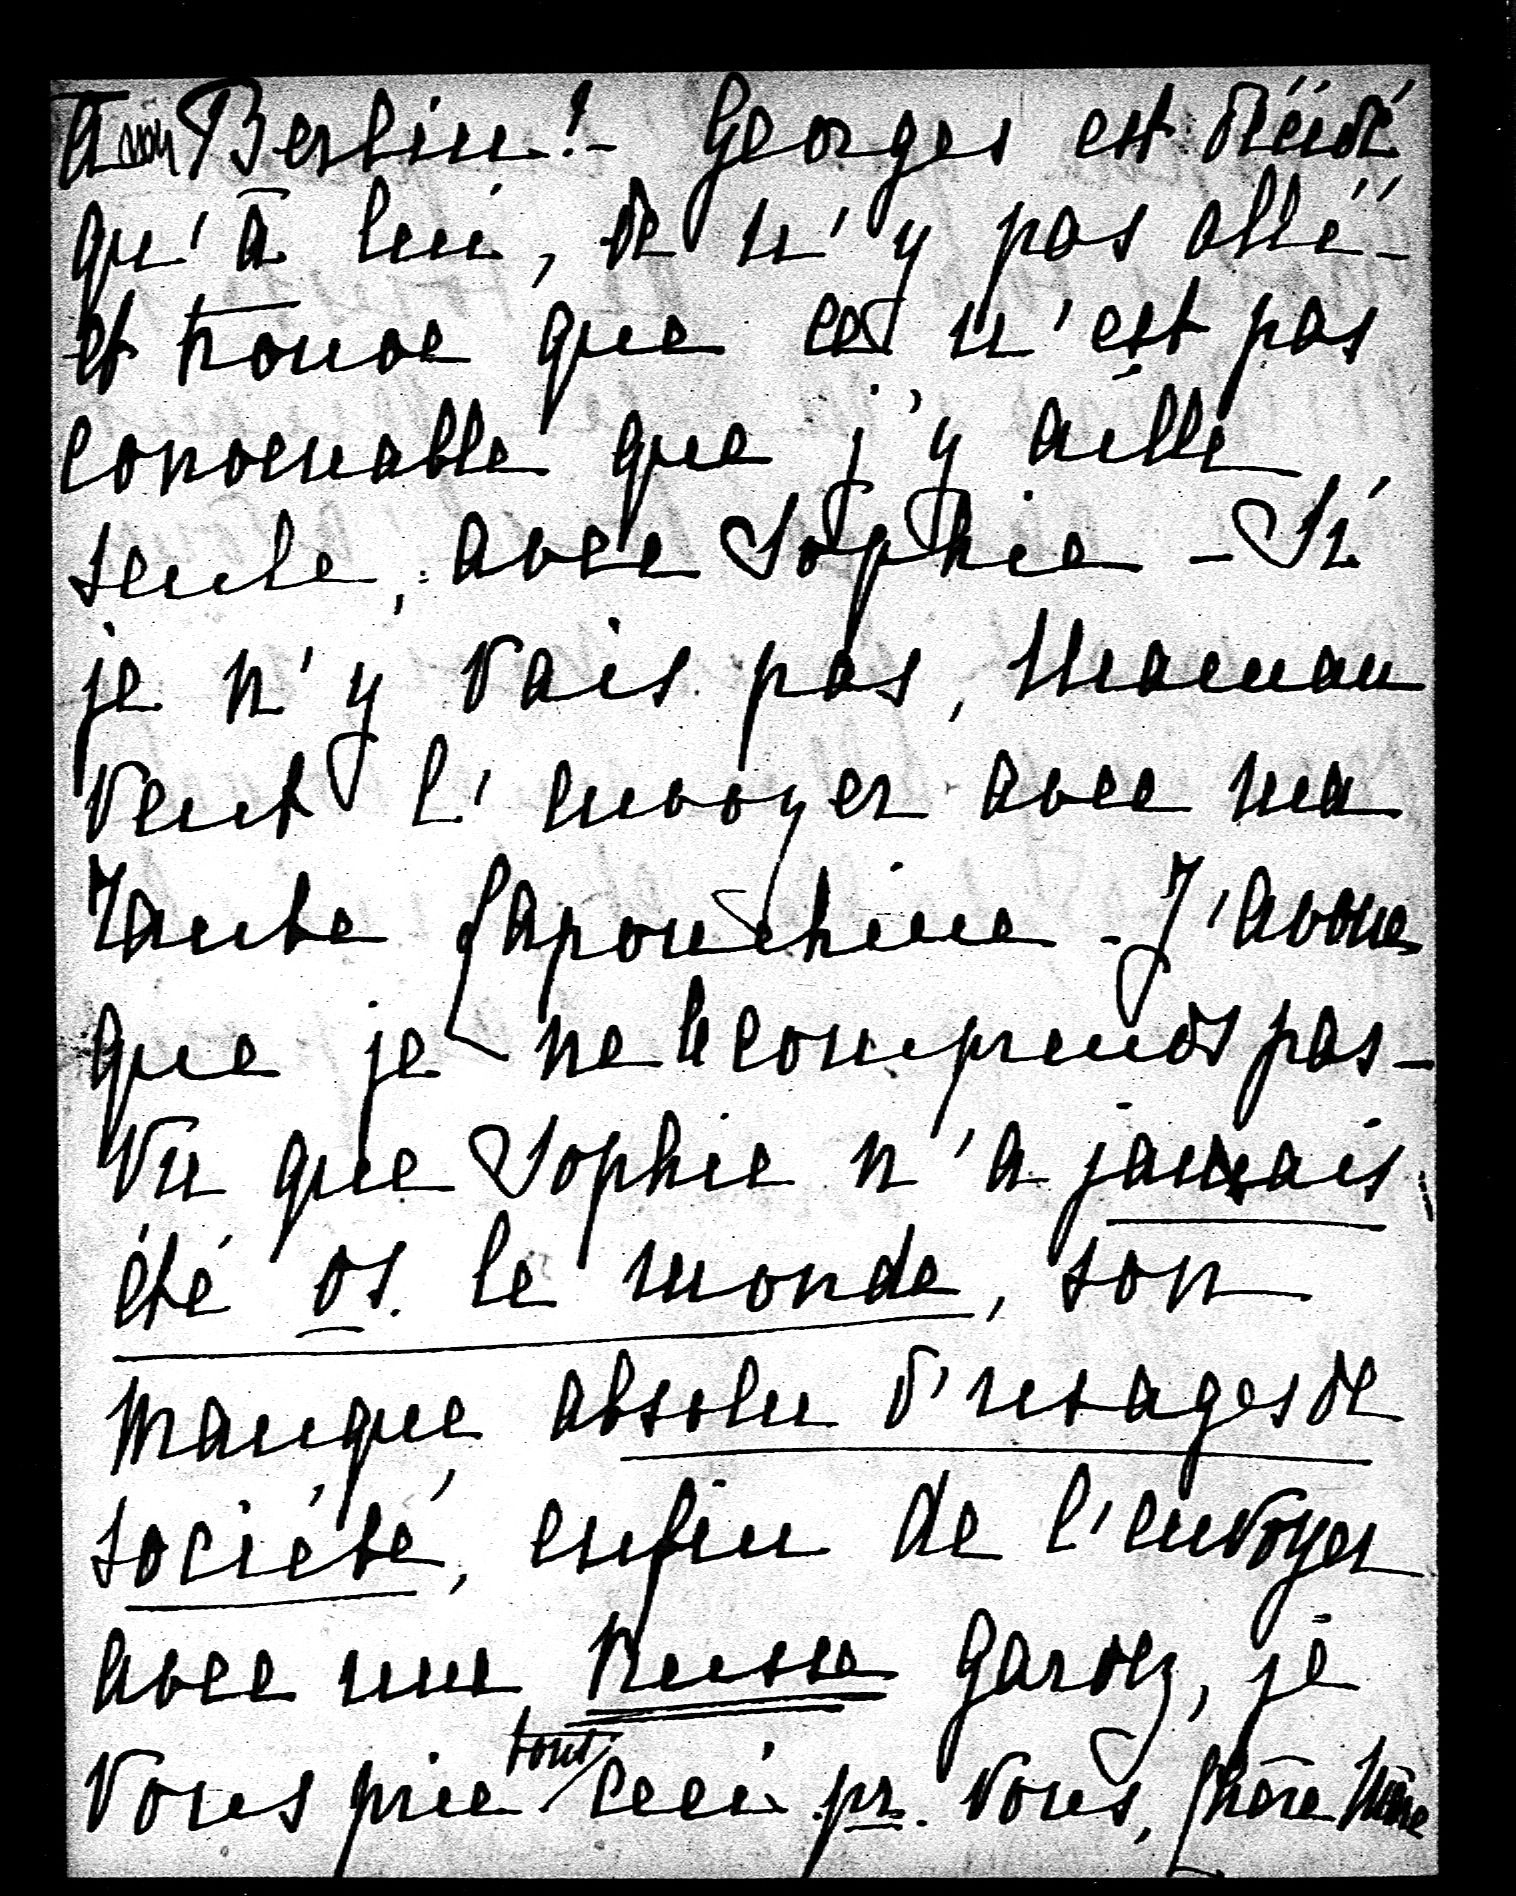 à Berlin!- Georges est décidé
qu' à lui, de n'y pas allé-
et trouve que ce n'est pas
convenable que j'y aille
seule, avec Sophie - Si
je n'y vais pas, Maman
veut l'envoyer avec ma
Tante Lapouchine - J'avoue
que je ne le comprends pas -
Vu que Sophie n'a jamais
été ds. le monde, son
manque absolu d'usages de
société, enfin de l'envoyer
avec une Russe Gardez, je
vous prie tout ceci pr. vous, chère Mère